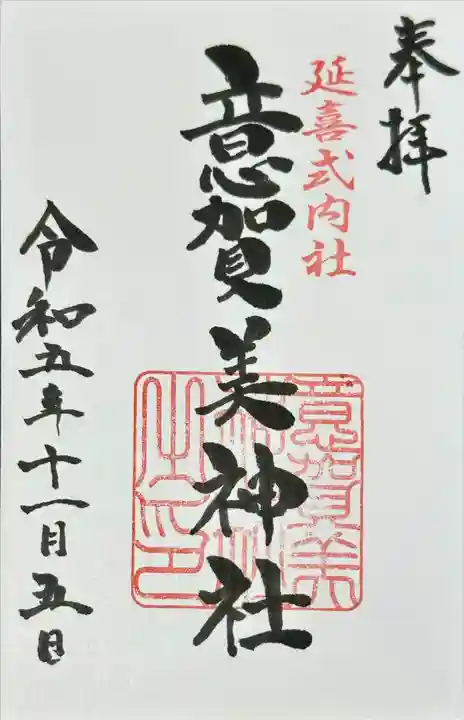 奉拝
延喜式内社
意賀美神社
意賀美神社之印
令和五年十一月五日